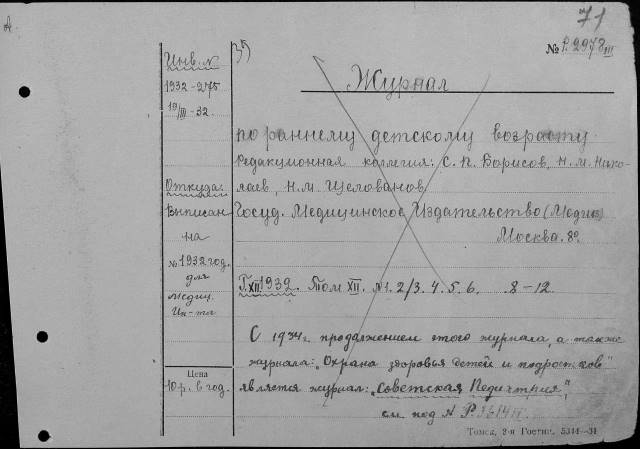 71
№ Р.2978 III
35)
Журнал
Инв. №
1932-275
19/III-32.
Откуда:
Выписан
на
№ 1932 год.
для
Медиц.
Ин-та
Цена
10 р. в год.
по раннему детскому возрасту.
Редакционная коллегия: С. П. Борисов, Н. М. Нико-
лаев, Н. М. Щелованов
Госуд. Медицинское Издательство (Медгиз)
Москва. 8º.
Г. XII 1932. Том XII. №1. 2/3. 4. 5. 6. 8-12.
С 1934г. продолжением этого журнала, а также
журнала: „Охрана здоровья детей и подростков"
является журнал: „Советская Педиатрия",
см. под № Р.
Томск, 2-я Гостип. 5344—31